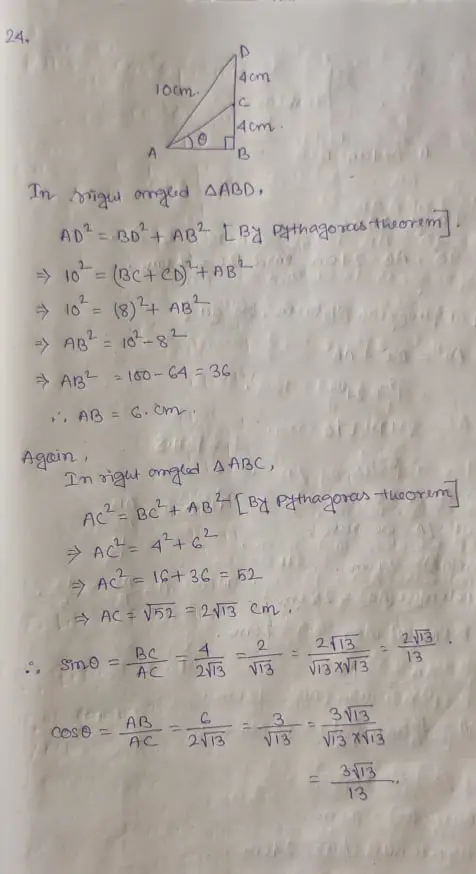 24.
D
10cm.
4cm
C
4cm.
θ
A
B
In right angled △ABD,
AD² = BD² + AB² [By Pythagoras theorem].
⇒ 10² = (BC + CD)² + AB²
⇒ 10² = (8)² + AB²
⇒ AB² = 10² - 8²
⇒ AB² = 100 - 64 = 36
∴ AB = 6 cm.
Again,
In right angled △ABC,
AC² = BC² + AB² [By Pythagoras theorem]
⇒ AC² = 4² + 6²
⇒ AC² = 16 + 36 = 52
⇒ AC = √52 = 2√13 cm.
∴ sinθ = BC/AC = 4/2√13 = 2/√13 = 2√13/√13×√13 = 2√13/13.
cosθ = AB/AC = 6/2√13 = 3/√13 = 3√13/√13×√13
= 3√13/13.